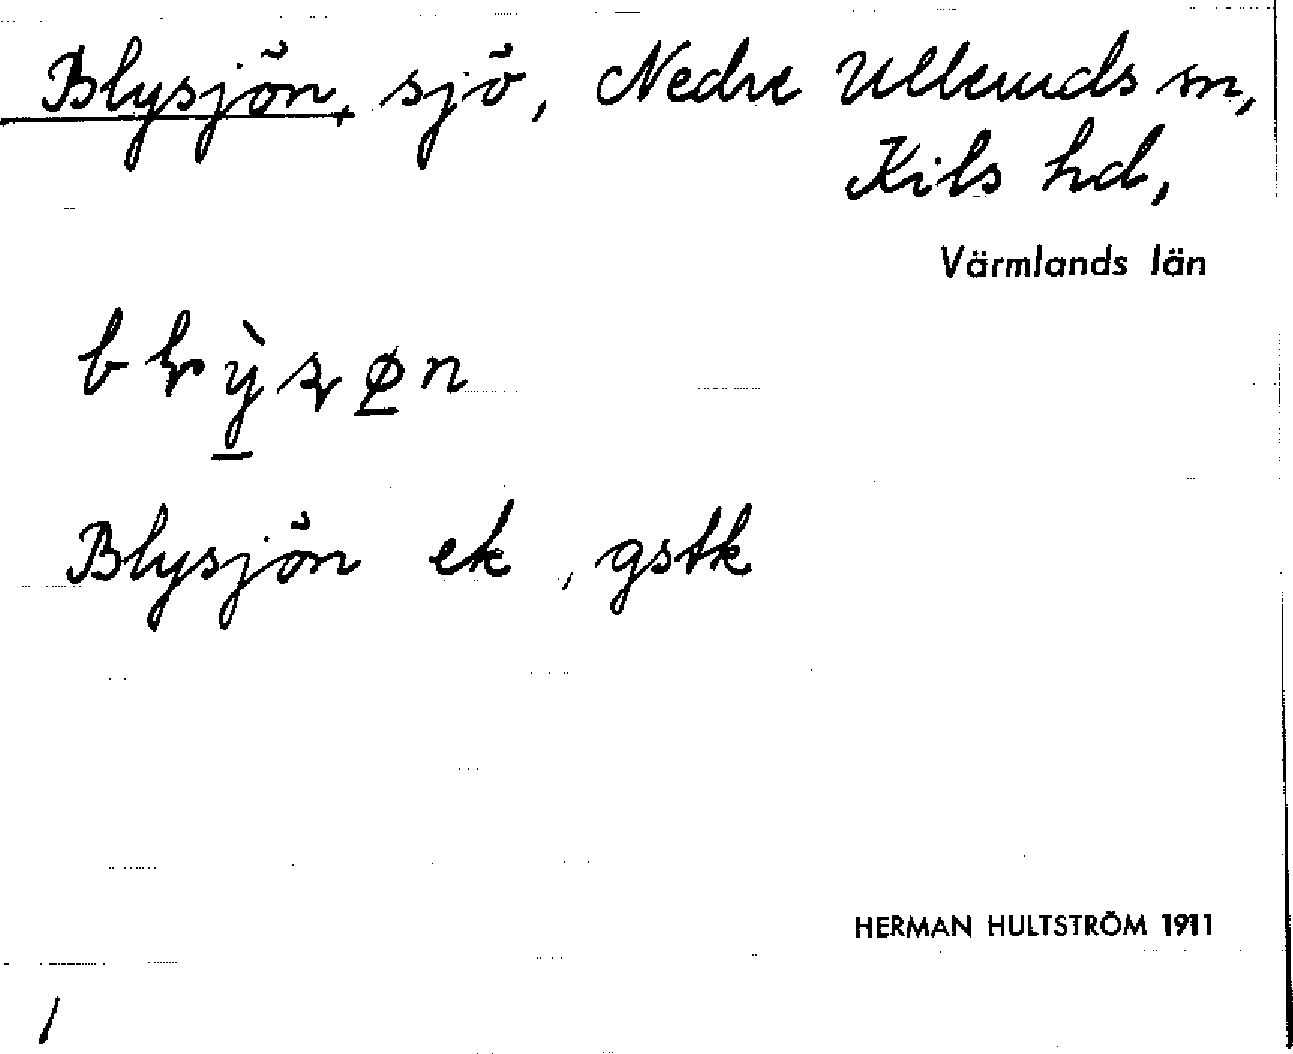 Blysjön, sjö, Nedre Ulleruds sn,
Kils hd,
Värmlands län
Blysjön ek, gstk
HERMAN HULTSTRÖM 1911
1